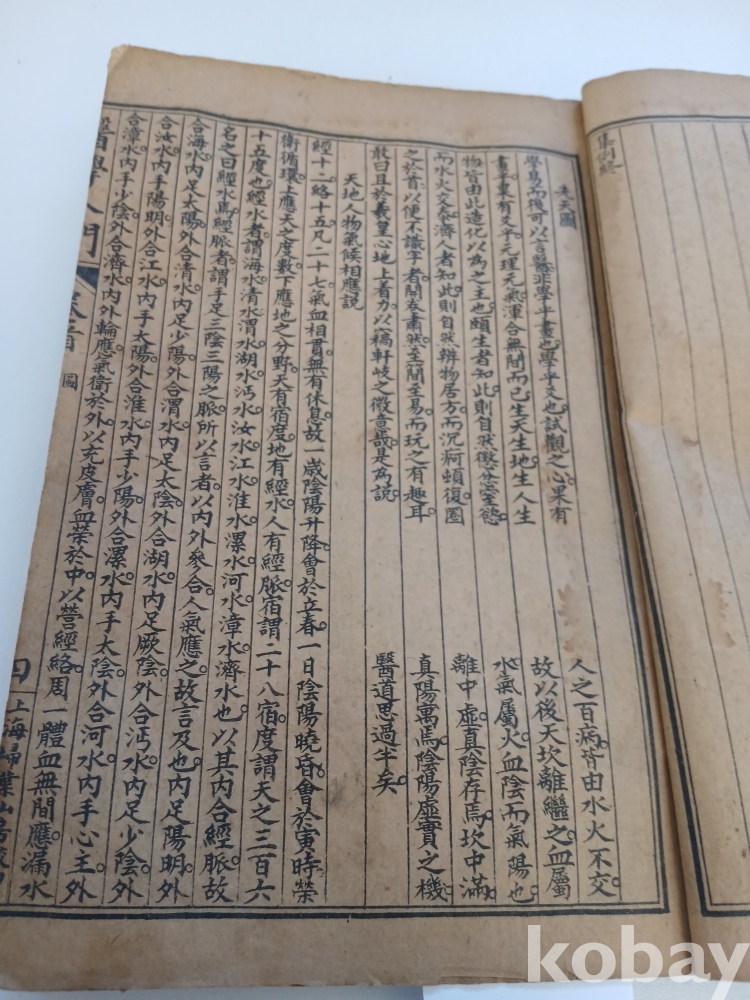 集例終
先天圖
學易而後可以言醫非學乎畫也學乎爻也試觀之心果有
畫乎果有爻乎元理元氣渾合無間而已生天生地生人生
物皆由此造化以為之主也頤生者知此則自然懲忿窒慾
而水火交泰濟人者知此則自然辨物居方而沉疴頓復圖
之於首以便不識字者開卷肅然至簡至易而玩之有趣耳
敢曰且於羲皇心地上着力以竊軒岐之微意哉是為說
人之百病皆由水火不交
故以後天坎離繼之血屬
水氣屬火血陰而氣陽也
離中虛真陰存焉坎中滿
真陽寓焉陰陽虛實之機
醫道思過半矣
天地人物氣候相應說
經十二絡十五凡二十七氣血相貫無有休息故一歲陰陽升降會於立春一日陰陽曉昏會於寅時榮
衛循環上應天之度數下應地之分野天有宿度地有經水人有經脈宿謂二十八宿度謂天之三百六
十五度也經水者謂海水清水渭水湖水沔水汝水江水淮水漯水河水漳水濟水也以其內合經脈故
名之曰經水焉經脈者謂手足三陰三陽之脈所以言者以內外參合人氣應之故言及也內足陽明外
合海水內足太陽外合清水內足少陽外合渭水內足太陰外合湖水內足厥陰外合沔水內足少陰外
合汝水內手陽明外合江水內手太陽外合淮水內手少陽外合漯水內手太陰外合河水內手心主外
合漳水內手少陰外合濟水內外輪應氣衛於外以充皮膚血榮於中以營經絡周一體血無間應漏水
醫學入門
卷首
圖
四
上海掃葉山房
kobay